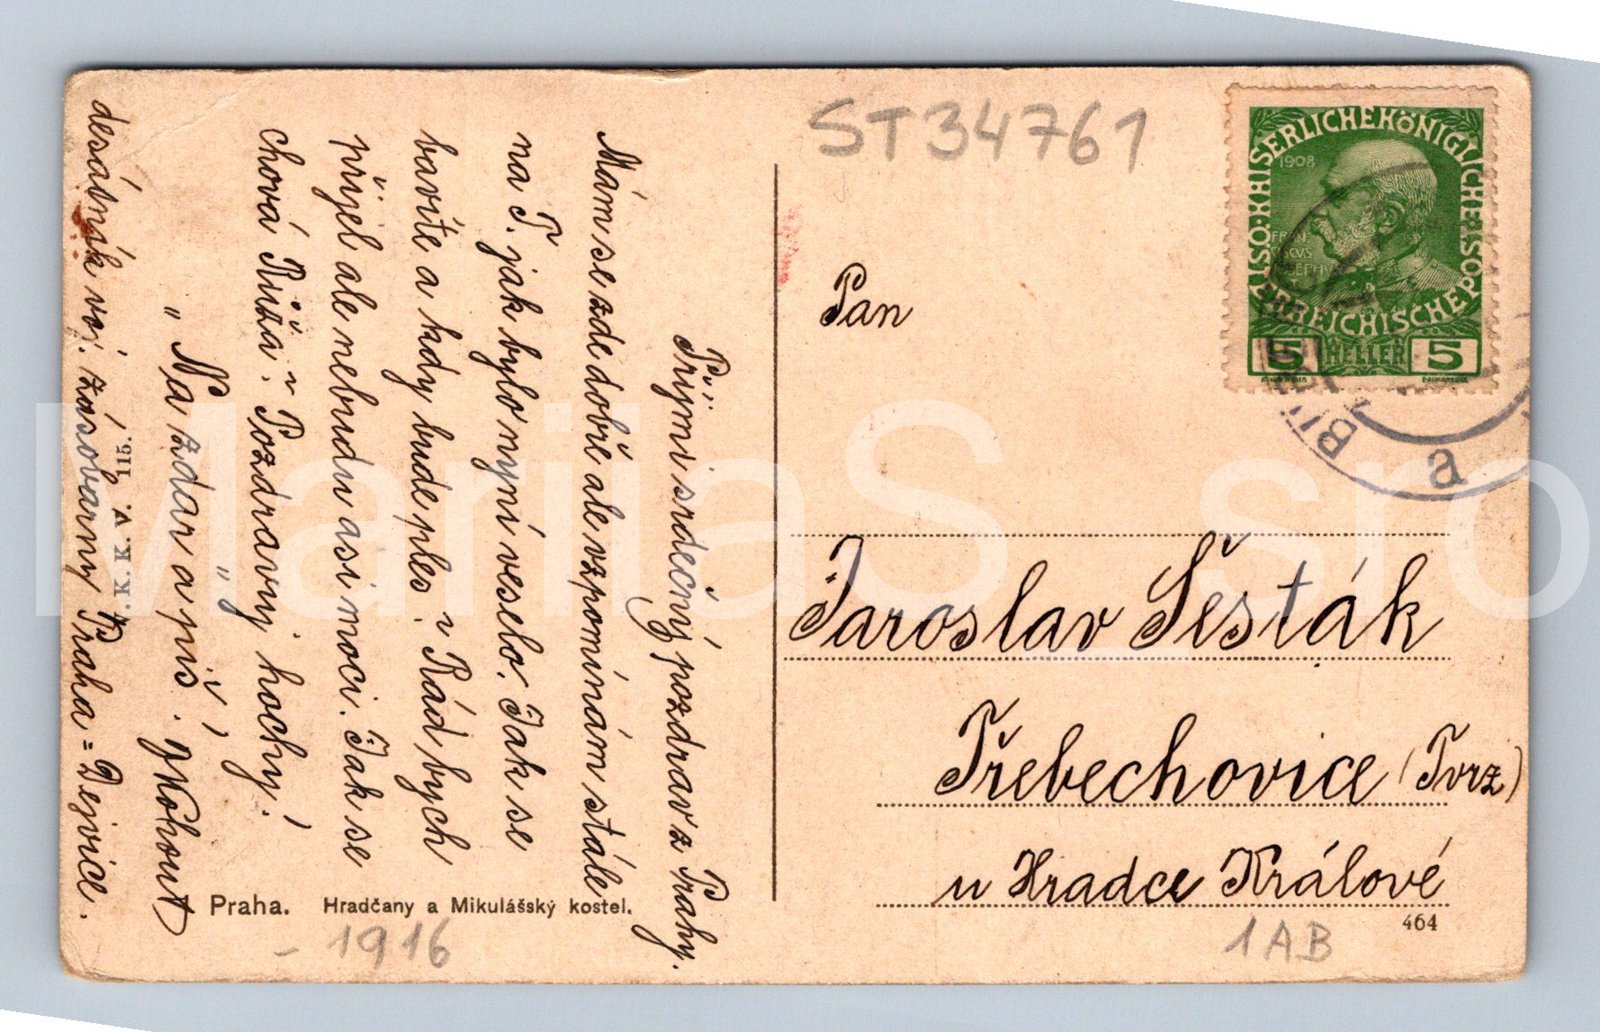 ST34761
KAISERLICHE KÖNIGLICHE
ÖSTERREICHISCHE POST
1908
5 HELLER 5
Pan
Jaroslav Šesták
Třebechovice (Tvrz)
u Hradce Králové
464
1AB
Přijmi srdečný pozdrav z Prahy.
Mám se zde dobře ale vzpomínám stále
na T. jak bylo nyní veselo. Jak se
bavíte a kdy bude ples. Rád bych
přijel ale nebudu asi moci. Jak se
chová Růža. Pozdravuj hochy!
„Na zdar a piš!"
Kohout
desátník voj. zásobárny Praha = Dejvice.
K. K. V. 115.
Praha. Hradčany a Mikulášský kostel.
- 1916
MarijaS_sro